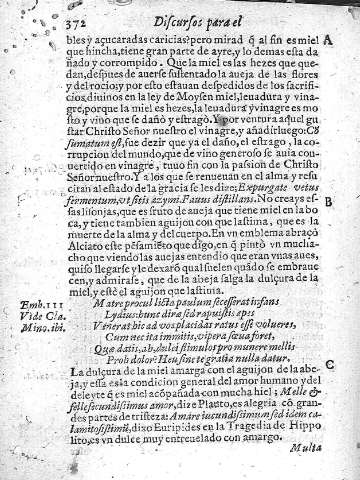 372 Discursos para el
bles y açucaradas caricias? pero mirad q̃ al fin es miel A
que hincha, tiene gran parte de ayre, y lo demas esta da
ñado y corrompido. Que la miel es las hezes que que
dan, despues de auerse sustentado la aueja de las flores
y del rocio; y por esto estauan despedidos de los sacrifi-
cios diuinos en la ley de Moysen miel, leuadura y vina-
gre, porque la miel es hezes, la leuadura y vinagre es mo
sto y vino que se dañò y estragò. Y por ventura aquel gu
star Christo Señor nuestro el vinagre, y añadir luego: Cõ
sumatum est, fue dezir que ya el daño, el estrago, la co-
rrupcion del mundo, que de vino generoso se auia con
uertido en vinagre, tuuo fin con la passion de Christo
Señor nuestro. Y a los que se renueuan en el alma y resu
citan al estado de la gracia se les dize; Expurgate vetus
fermentum, vt sitis azymi. Fauus distillans. No creays es- B
sas lisonjas, que es fruto de aueja que tiene miel en la bo
ca, y tiene tambien aguijon con que lastima, que es la
muerte de la alma y del cuerpo. En vn emblema abraçò
Alciato este pẽsamiẽto que digo, en q̃ pintò vn mucha-
cho que viendo las auejas entendio que eran vnas aues,
quiso llegarse y le dexarõ qual suelen quãdo se embraue
cen, y admirase, que de la abeja salga la dulçura de la
miel, y estè el aguijon que lastima.
Emb. 111 Matre procul licta paulum secesserat infans
Vide Cla. Lydius: hunc diræ sed rapuistis apes
Mino. ibi. Venerat hic ad vos placidas ratus esse volucres,
Cum nec ita immitis, vipera sæua foret,
Quæ datis, ah, dulci stimulos pro munere mellis
Proh dolor? Heu sine te gratia nulla datur.
La dulçura de la miel amarga con el aguijon de la abe- C
ja, y essa es la condicion general del amor humano y del
deleyte q̃ es miel acõpañada con mucha hiel; Melle &
felle fecundissimus amor, dize Plauto, es alegria cõ gran-
des partes de tristeza: Amare iucundissimum sed idem ca-
lamitosissimũ, dixo Euripides en la Tragedia de Hippo
lito, es vn dulce muy entreuelado con amargo.
Multa